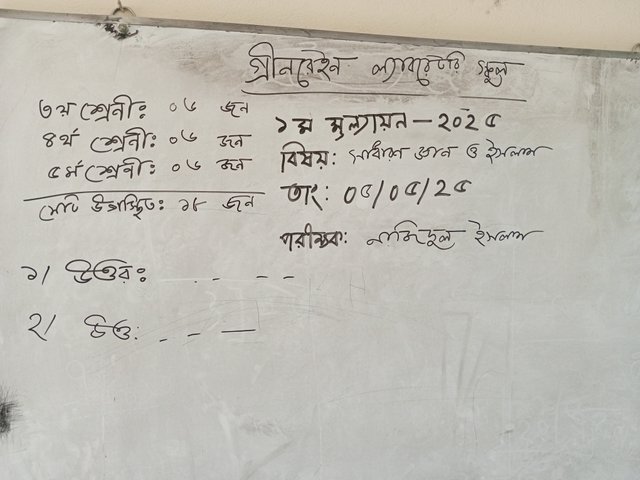 গ্রীনরেইন ল্যাবরেটরি স্কুল
৩য় শ্রেনী: ০৬ জন
৪র্থ শ্রেনী: ০৬ জন
৫ম শ্রেনী: ০৬ জন
মোট উপস্থিত: ১৮ জন
১ম মুল্যায়ন – ২০২৫
বিষয়: সাধারণ জ্ঞান ও ইসলাম
তাং: ০৫/০৫/২৫
পরীক্ষক: নাজিদুল ইসলাম
১/ উত্তর: - - - -
২/ উত্ত: - - —